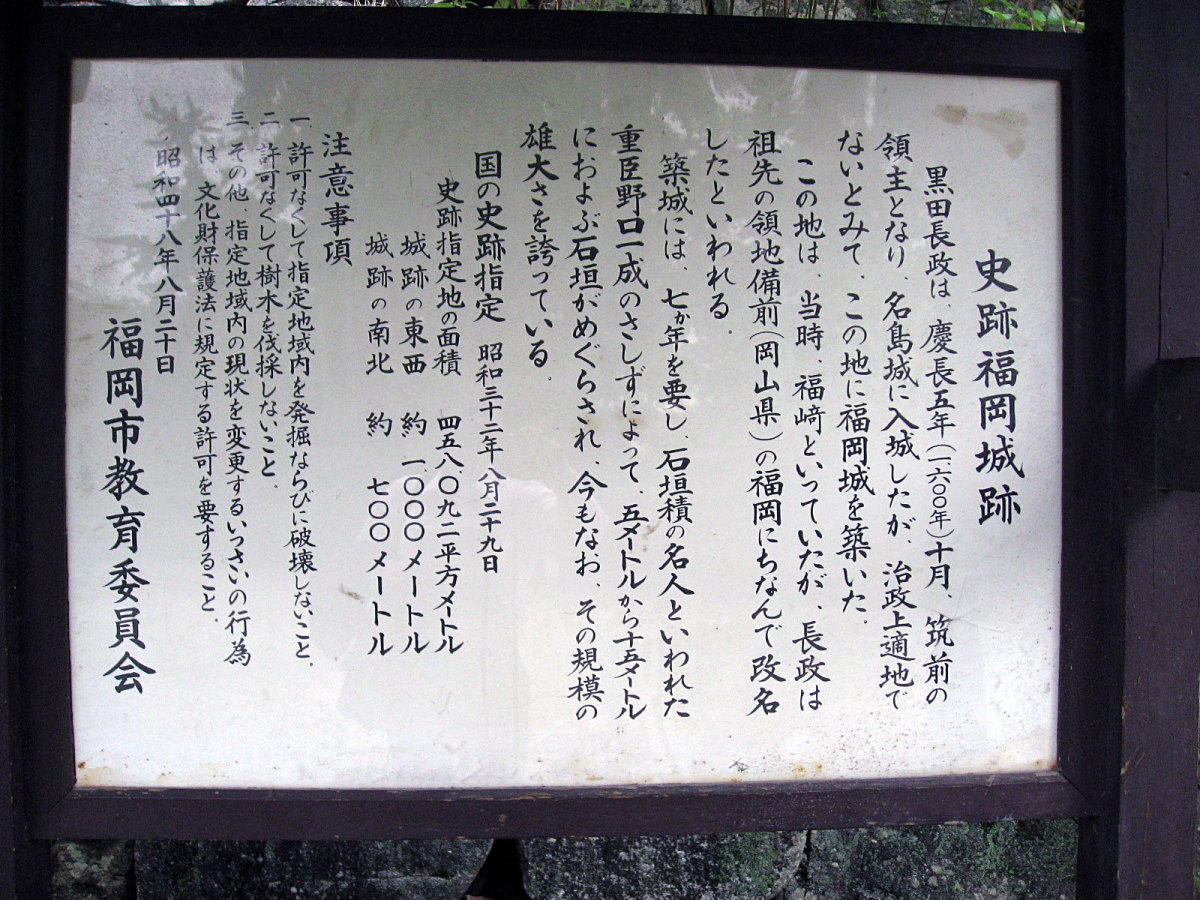 史跡福岡城跡
黒田長政は、慶長五年(一六〇〇年)十月、筑前の
領主となり、名島城に入城したが、治政上適地で
ないとみて、この地に福岡城を築いた.
この地は、当時、福崎といっていたが、長政は
祖先の領地備前(岡山県)の福岡にちなんで改名
したといわれる.
築城には、七か年を要し、石垣積の名人といわれた
重臣野口一成のさしずによって、五メートルから十五メートル
におよぶ石垣がめぐらされ、今もなお、その規模の
雄大さを誇っている.
国の史跡指定 昭和三十二年八月二十九日
史跡指定地の面積 四五八〇九二平方メートル
城跡の東西 約 一、〇〇〇メートル
城跡の南北 約 七〇〇メートル
注意事項
一 許可なくして指定地域内を発掘ならびに破壊しないこと.
二 許可なくして樹木を伐採しないこと.
三 その他、指定地域内の現状を変更するいっさいの行為
は、文化財保護法に規定する許可を要すること.
昭和四十八年八月二十日
福岡市教育委員会